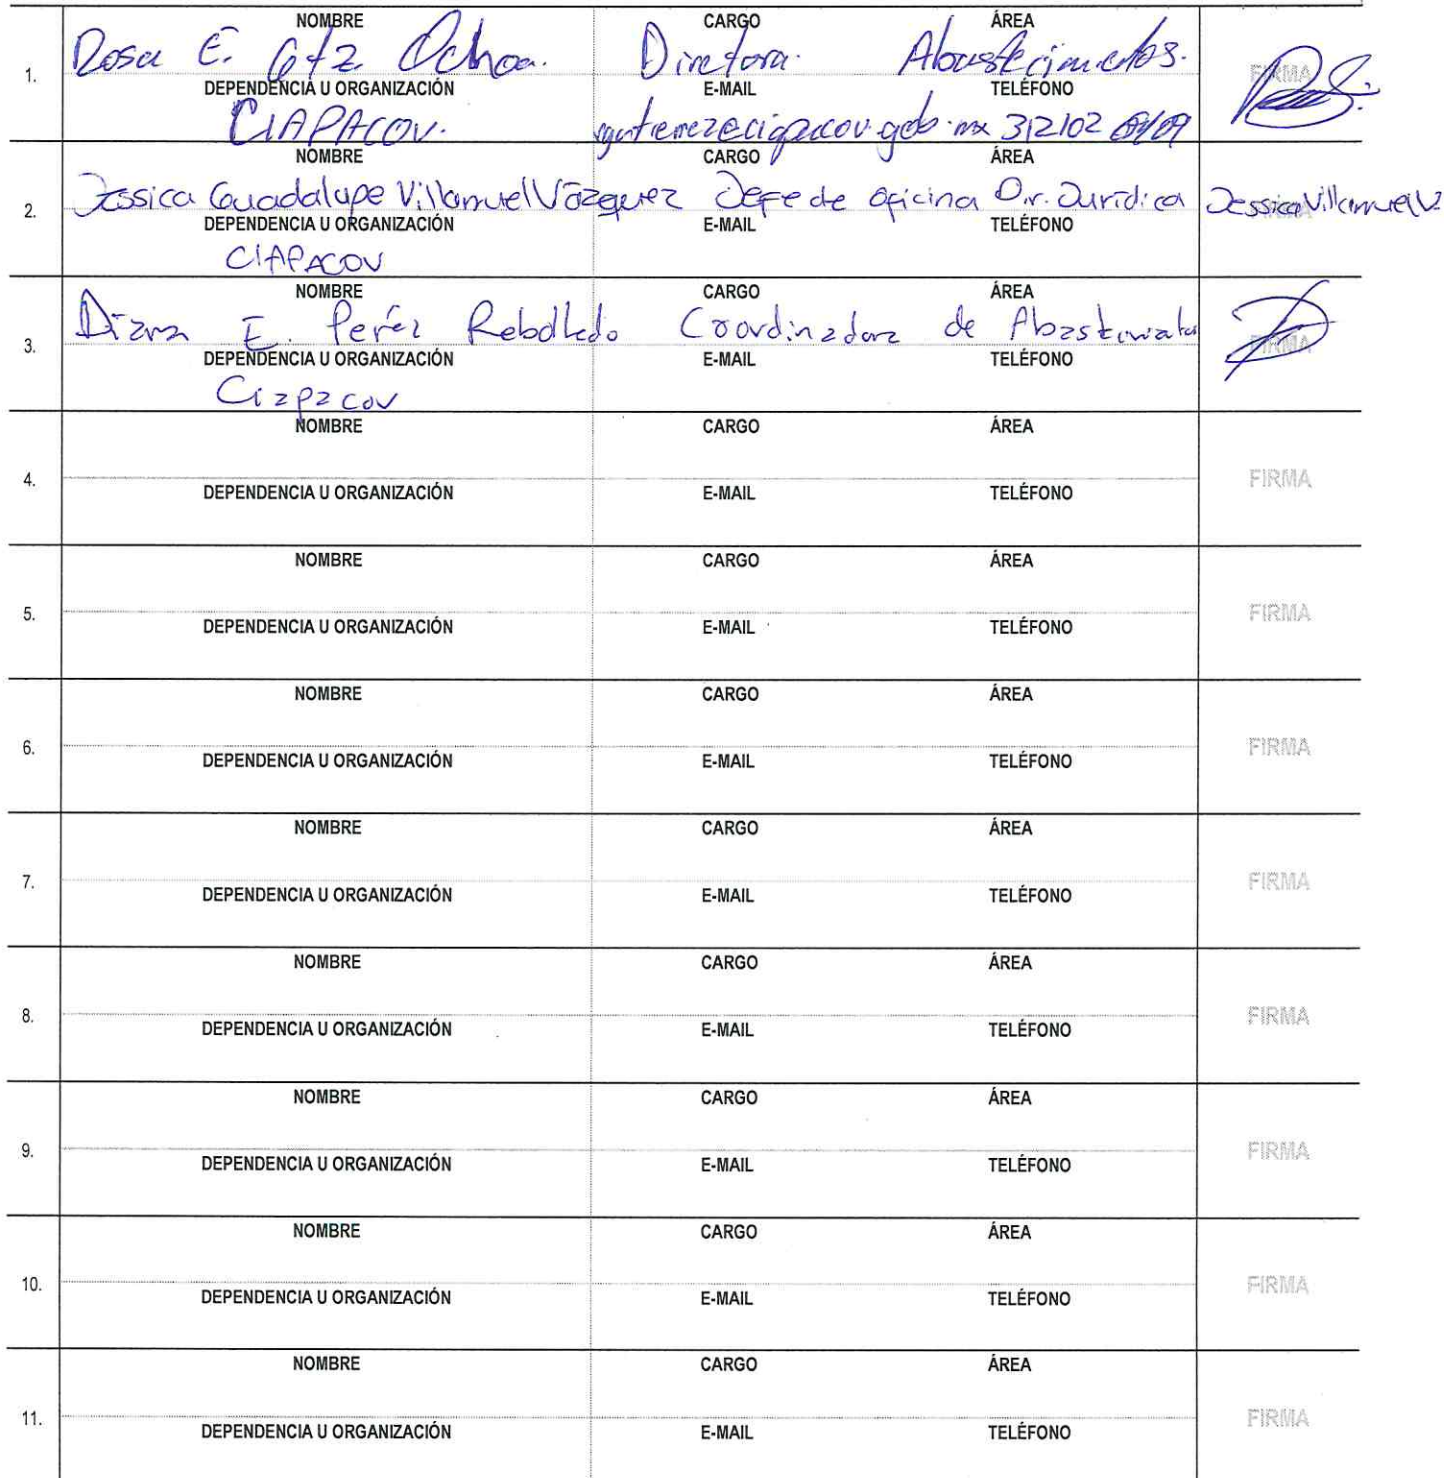 NOMBRE CARGO ÁREA
Rosa E. Gtz Ochoa. Diretora. Abastecimientos.
1. FIRMA
DEPENDENCIA U ORGANIZACIÓN E-MAIL TELÉFONO
CIAPACOV. rgutierrez@ciapacov.gob.mx 312102
NOMBRE CARGO ÁREA
Jessica Guadalupe Villarruel Vázquez Jefe de oficina Dir. Jurídica Jessica Villarruel V.
2. FIRMA
DEPENDENCIA U ORGANIZACIÓN E-MAIL TELÉFONO
CIAPACOV
NOMBRE CARGO ÁREA
Diana E. Peréz Rebolledo Coordinadora de
3. FIRMA
DEPENDENCIA U ORGANIZACIÓN E-MAIL TELÉFONO
Ciapacov
NOMBRE CARGO ÁREA
4. FIRMA
DEPENDENCIA U ORGANIZACIÓN E-MAIL TELÉFONO
NOMBRE CARGO ÁREA
5. FIRMA
DEPENDENCIA U ORGANIZACIÓN E-MAIL TELÉFONO
NOMBRE CARGO ÁREA
6. FIRMA
DEPENDENCIA U ORGANIZACIÓN E-MAIL TELÉFONO
NOMBRE CARGO ÁREA
7. FIRMA
DEPENDENCIA U ORGANIZACIÓN E-MAIL TELÉFONO
NOMBRE CARGO ÁREA
8. FIRMA
DEPENDENCIA U ORGANIZACIÓN E-MAIL TELÉFONO
NOMBRE CARGO ÁREA
9. FIRMA
DEPENDENCIA U ORGANIZACIÓN E-MAIL TELÉFONO
NOMBRE CARGO ÁREA
10. FIRMA
DEPENDENCIA U ORGANIZACIÓN E-MAIL TELÉFONO
NOMBRE CARGO ÁREA
11. FIRMA
DEPENDENCIA U ORGANIZACIÓN E-MAIL TELÉFONO